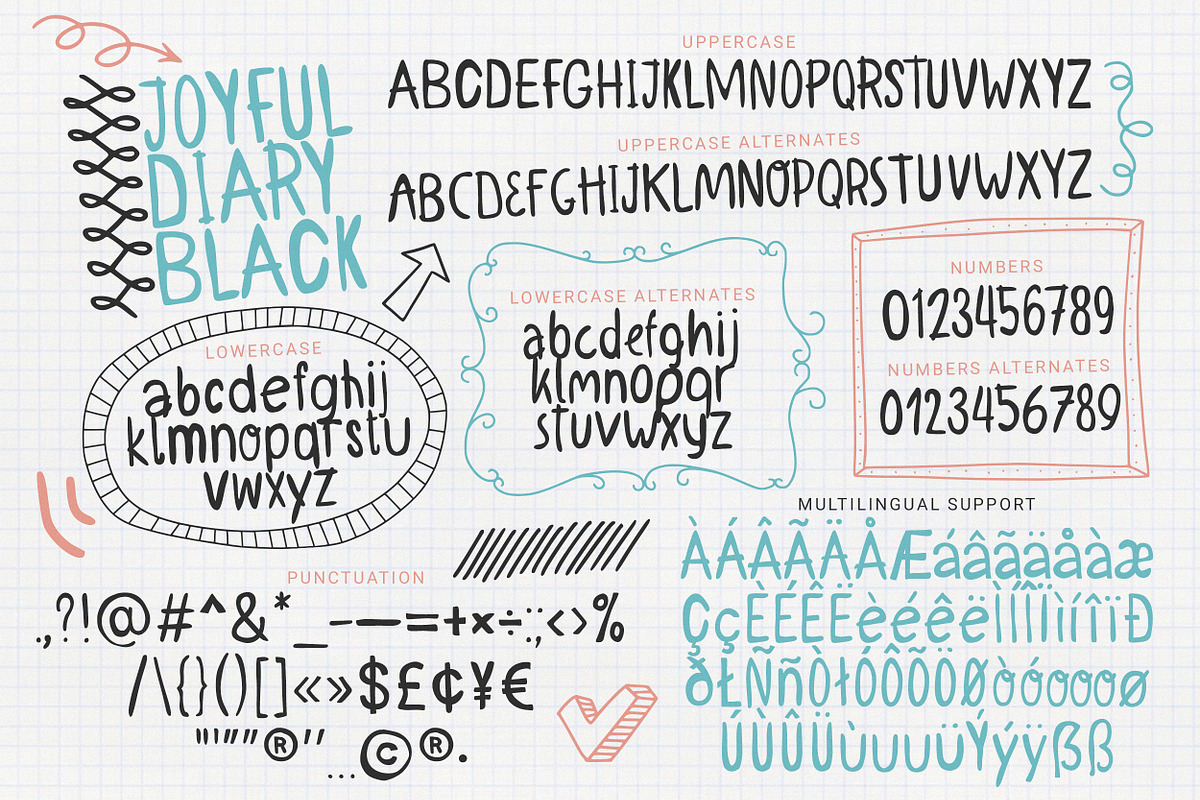 JOYFUL
DIARY
BLACK
UPPERCASE
ABCDEFGHIJKLMNOPQRSTUVWXYZ
UPPERCASE ALTERNATES
ABCDEFGHIJKLMNOPQRSTUVWXYZ
LOWERCASE
abcdefghij
klmnopqrstu
vwxyz
LOWERCASE ALTERNATES
abcdefghij
klmnopqr
stuvwxyz
NUMBERS
0123456789
NUMBERS ALTERNATES
0123456789
PUNCTUATION
.,?!@#^&*_-—=+×÷:;<>%
/\{}()[]«»$£¢¥€
"'"”"®'' ...©®.
MULTILINGUAL SUPPORT
ÀÁÂÃÄÅÆáâãäåàæ
ÇçÈÉÊËèéêëÌÍÎÏìíîïÐ
ðŁÑñÒłÓÔÕÖØòóôõöø
ÚÙÛÜùúûüÝýÿßß